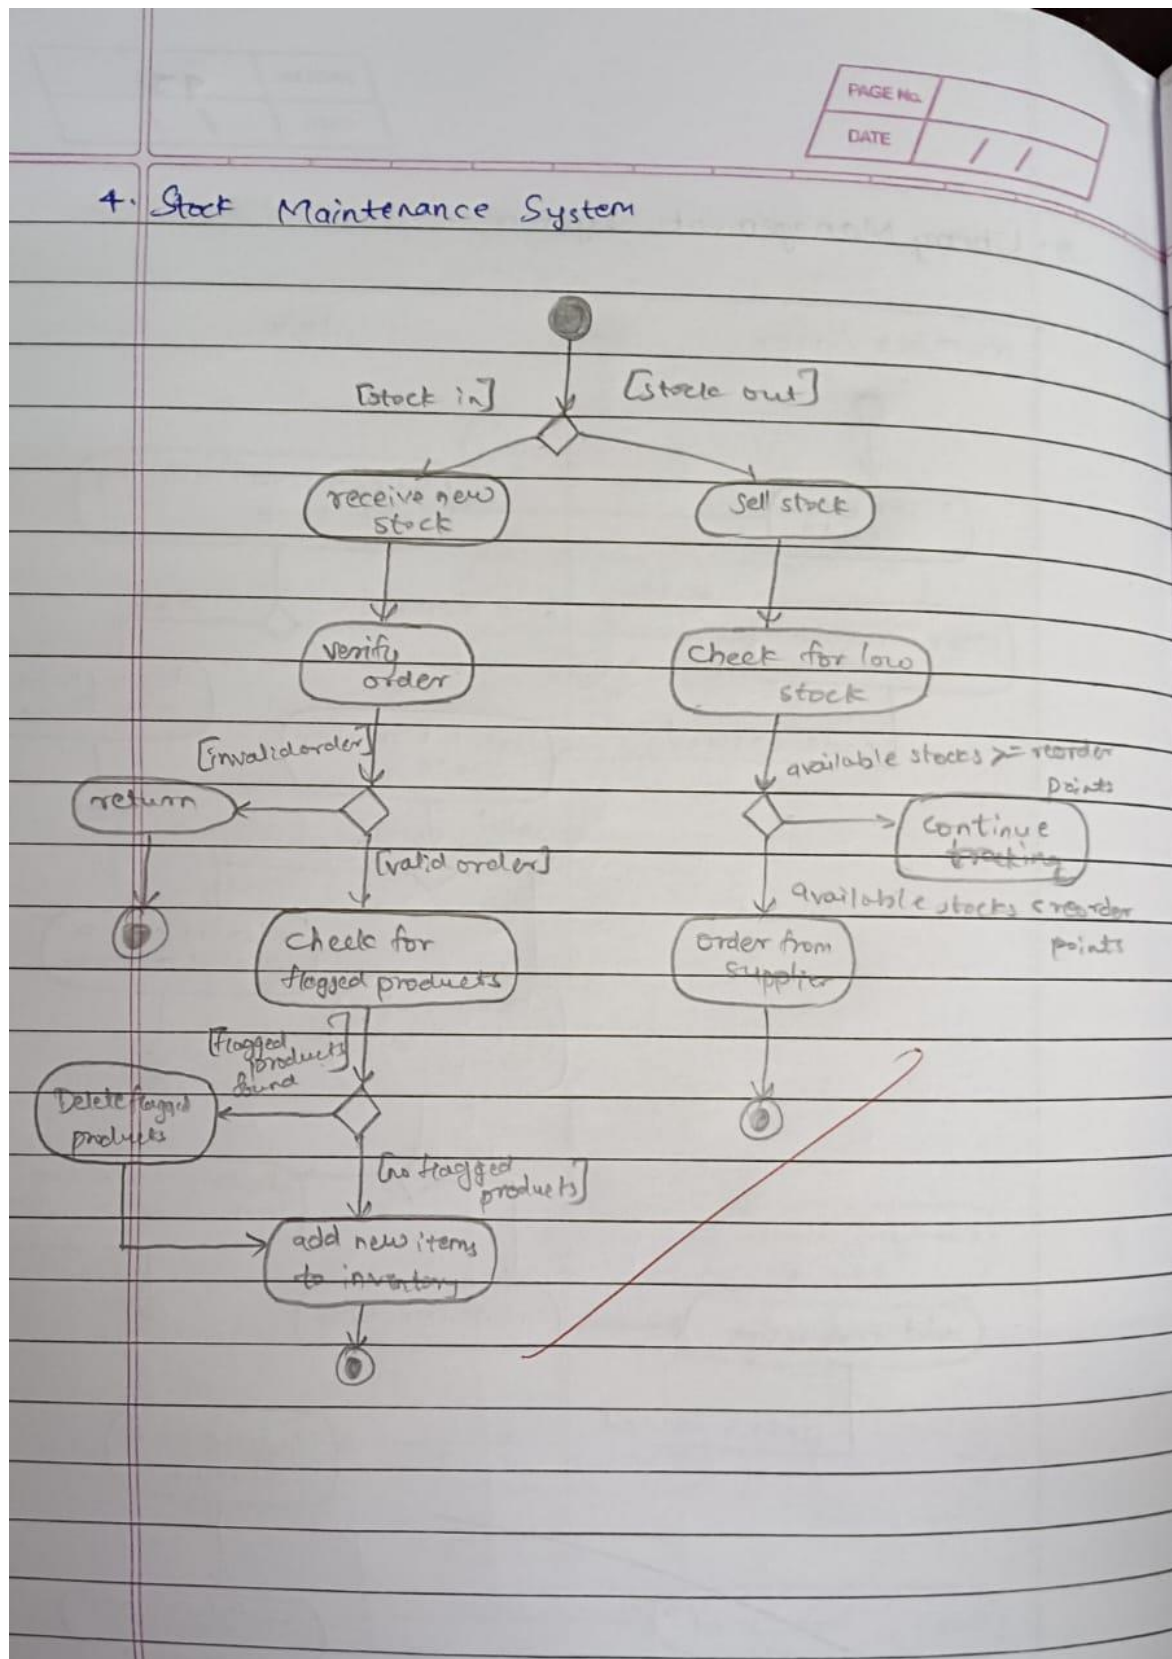 PAGE No.
DATE / /
4. Stock Maintenance System
[stock in]
[stock out]
receive new
stock
sell stock
verify
order
check for low
stock
[invalid order]
available stocks >= reorder
points
return
continue
tracking
[valid order]
available stocks < reorder
points
check for
flagged products
order from
supplier
[flagged
products]
found
Delete flagged
products
[no flagged
products]
add new items
to inventory